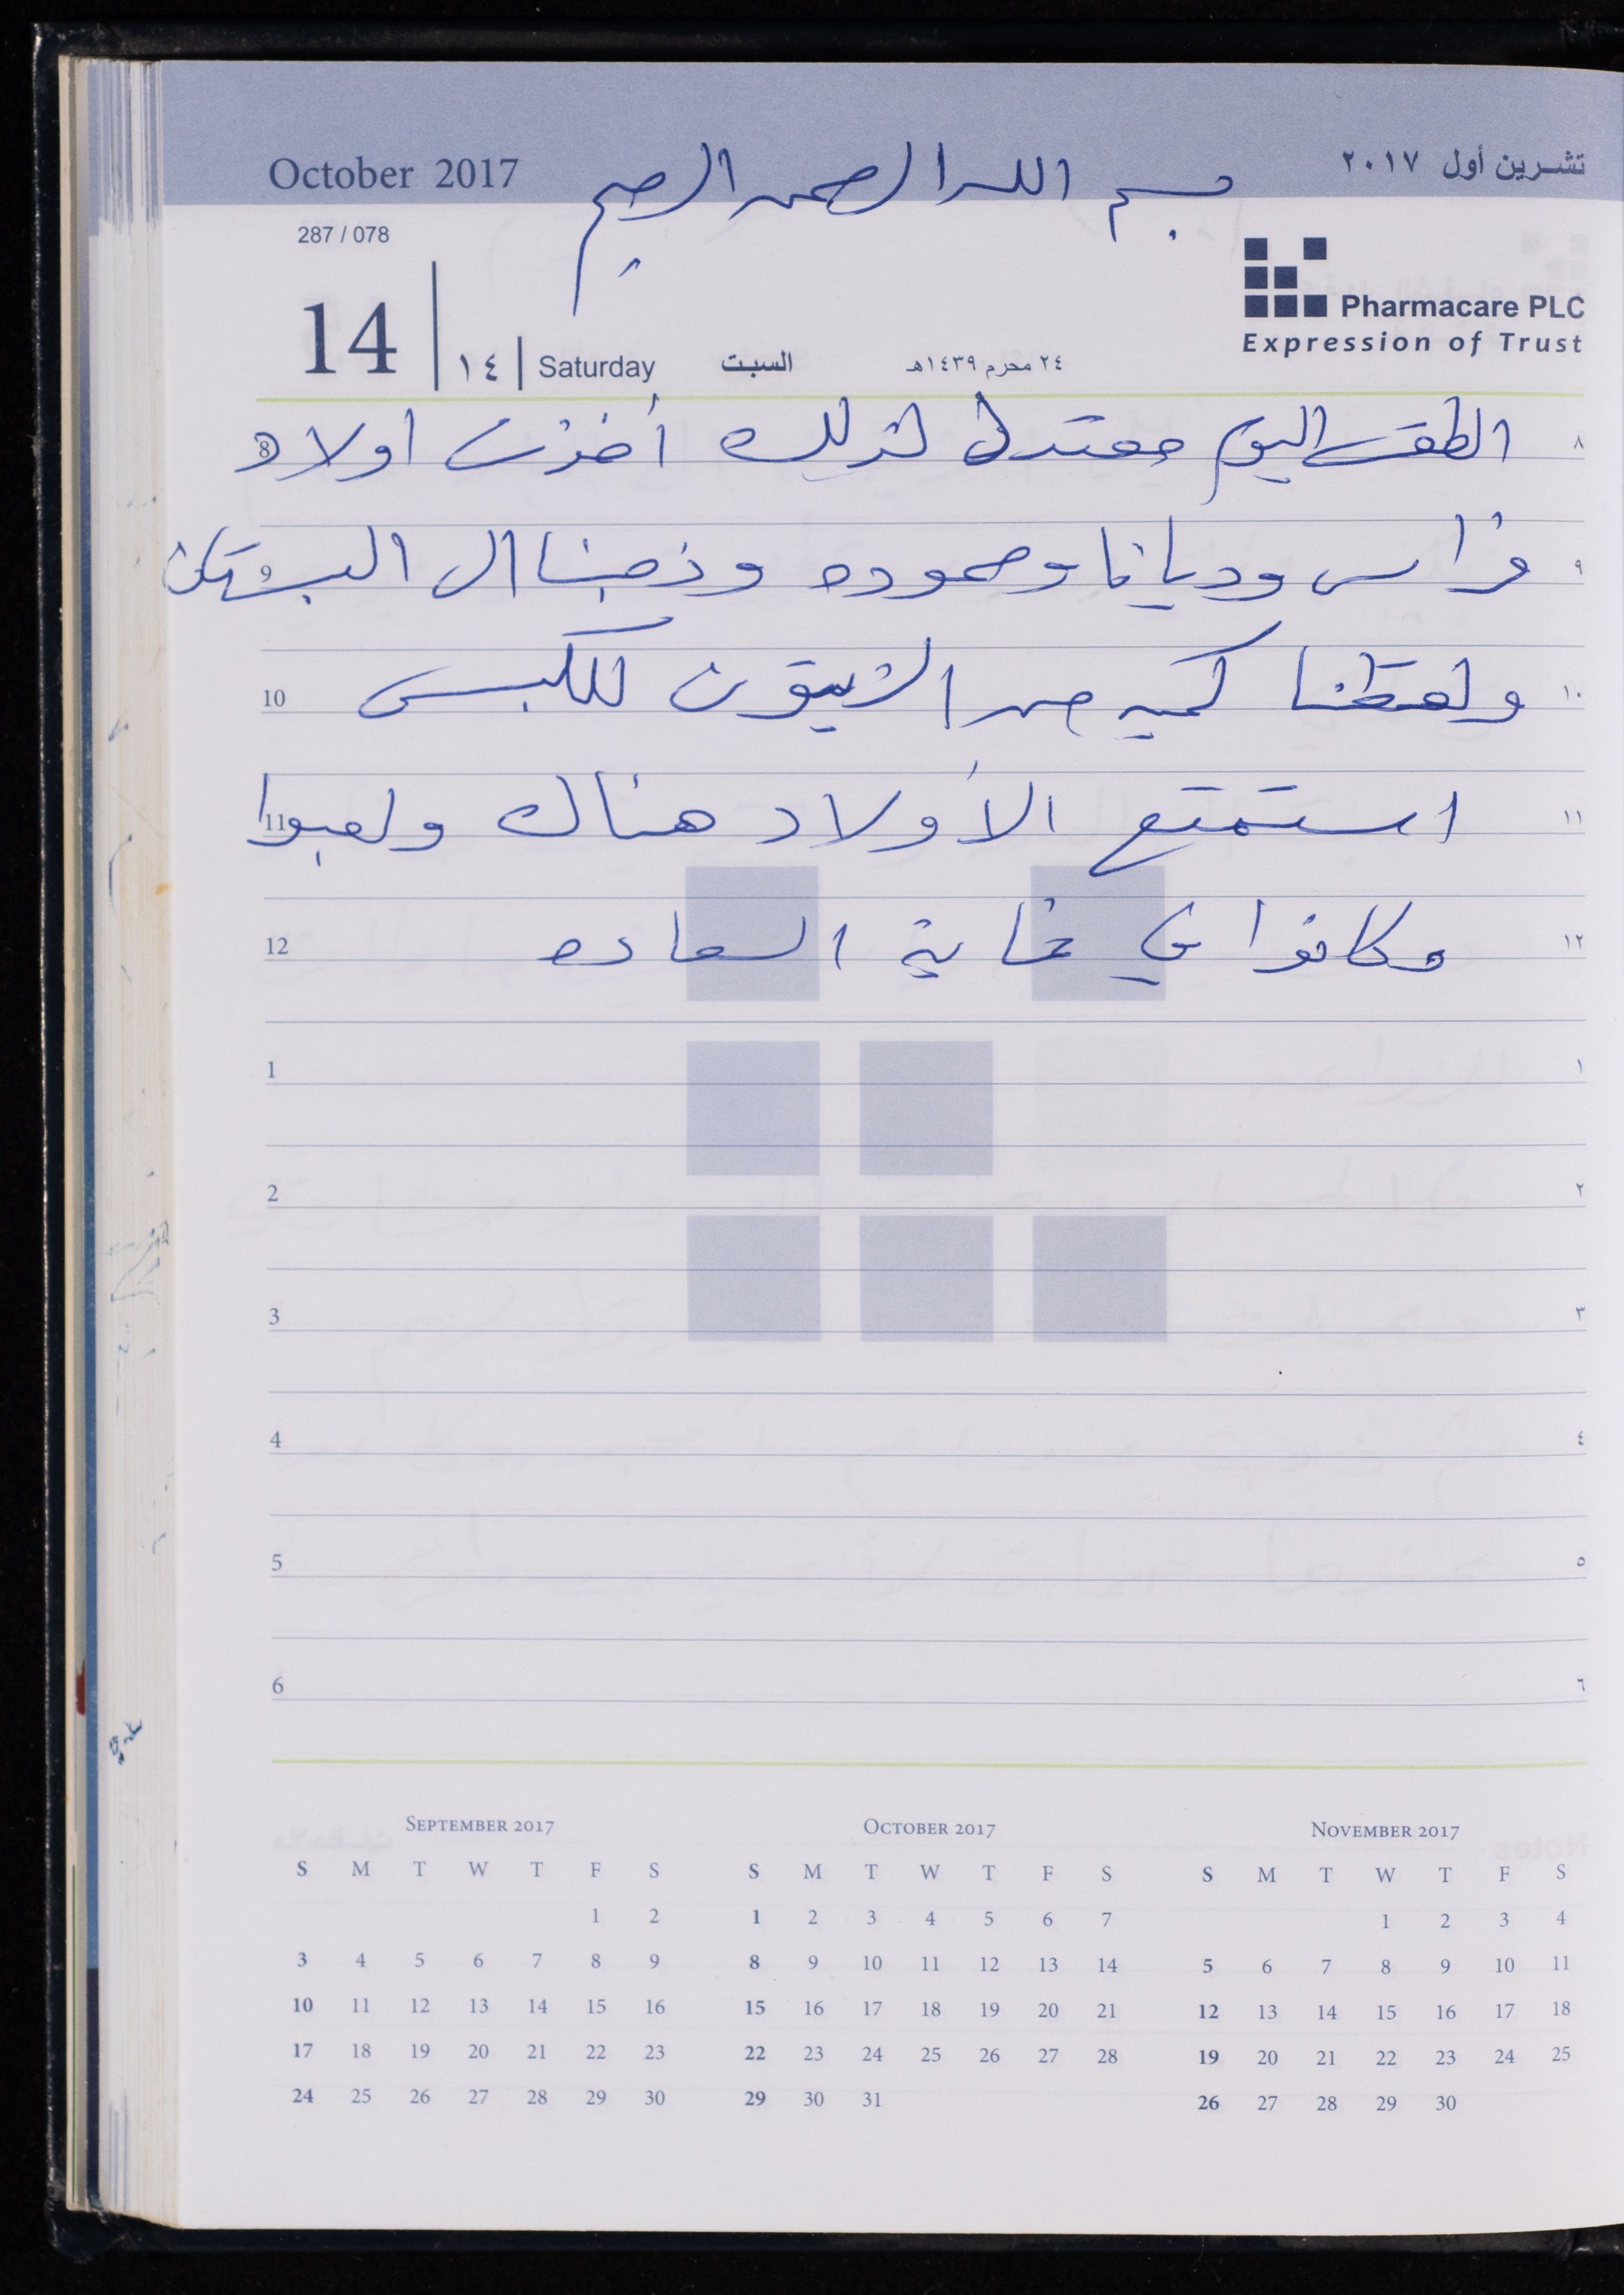 October 2017 بسم الله الرحمن الرحيم تشرين أول ٢٠١٧
287 / 078
Pharmacare PLC
Expression of Trust
14 ١٤ Saturday السبت ٢٤ محرم ١٤٣٩هـ
8 الطقس اليوم معتدل لذلك أخذت اولاد ٨
9 فراس وديانا وحموده وذهبنا الى البستان ٩
10 ولقطنا كميه من الزيتون للكبيس ١٠
11 استمتع الأولاد هناك ولعبوا ١١
12 وكانوا في غاية السعاده ١٢
1 ١
2 ٢
3 ٣
4 ٤
5 ٥
6 ٦
SEPTEMBER 2017
S M T W T F S
1 2
3 4 5 6 7 8 9
10 11 12 13 14 15 16
17 18 19 20 21 22 23
24 25 26 27 28 29 30
OCTOBER 2017
S M T W T F S
1 2 3 4 5 6 7
8 9 10 11 12 13 14
15 16 17 18 19 20 21
22 23 24 25 26 27 28
29 30 31
NOVEMBER 2017
S M T W T F S
1 2 3 4
5 6 7 8 9 10 11
12 13 14 15 16 17 18
19 20 21 22 23 24 25
26 27 28 29 30